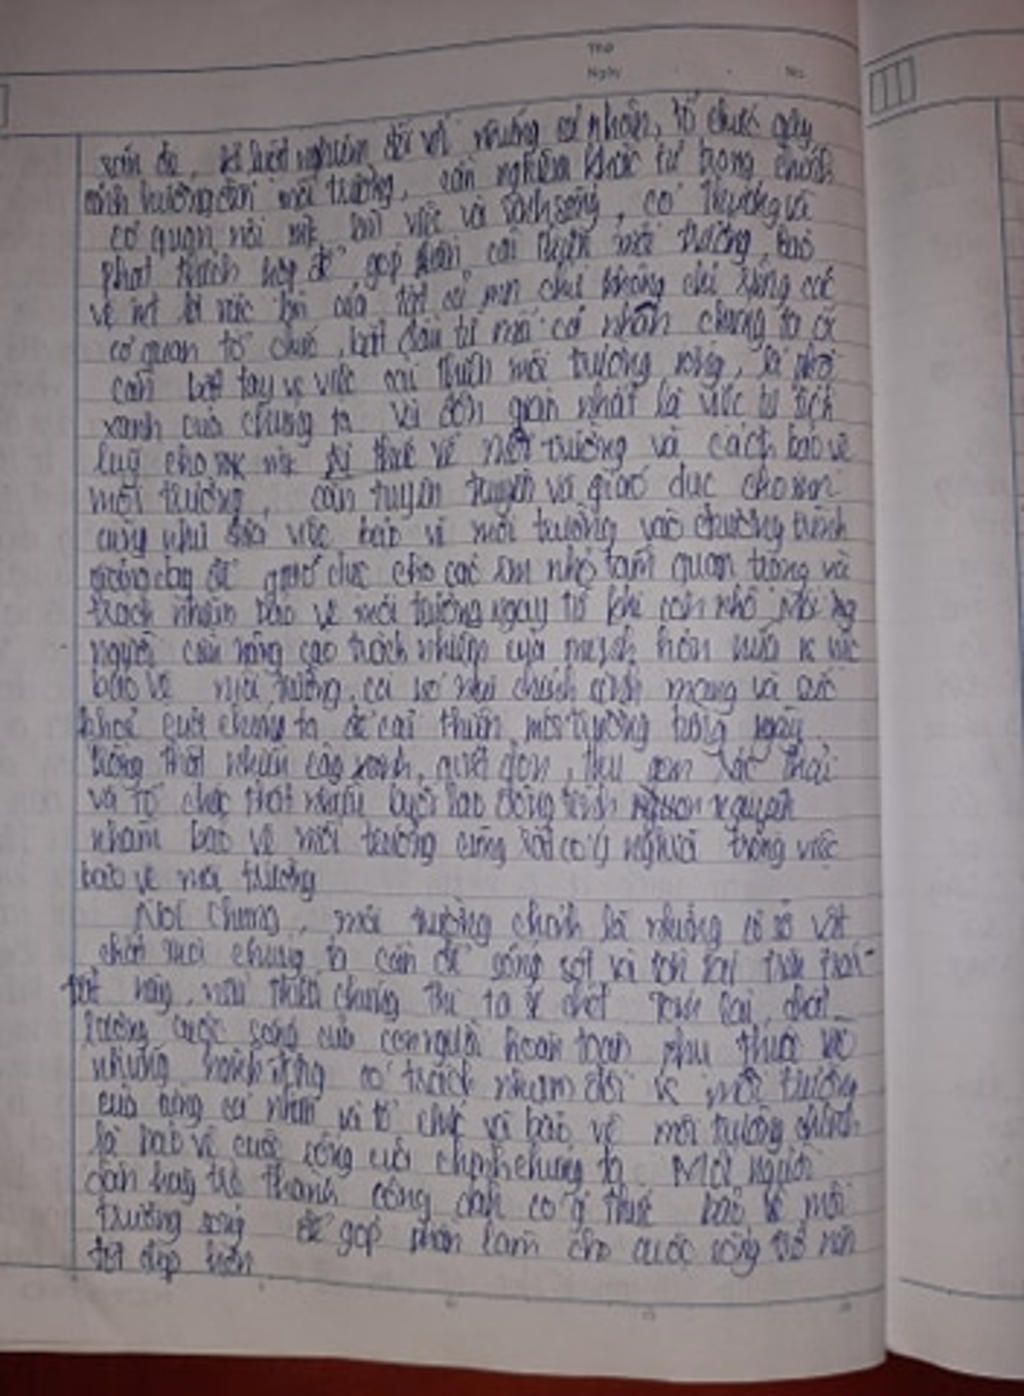 Thứ
Ngày No.
răn đe, kỉ luật nghiêm đối với những cá nhân, tổ chức gây
ảnh hưởng đến môi trường, cần nghiêm khắc từ trong chính
cơ quan nơi mk làm việc và sinh sống, có thưởng và
phạt thích hợp để góp phần cải thiện môi trường, bảo
vệ mt là việc làm của tất cả mn chứ không chỉ riêng các
cơ quan tổ chức, bắt đầu từ mỗi cá nhân chúng ta
cần bắt tay vs việc cải thiện môi trường sống,
xanh của chúng ta và đơn giản nhất là việc tự tích
luỹ cho mk tri thức về môi trường và cách bảo vệ
môi trường, cần tuyên truyền và giáo dục cho mn
cũng như đưa việc bảo vệ môi trường vào chương trình
giảng dạy để giáo dục cho các em nhỏ tầm quan trọng và
trách nhiệm bảo vệ môi trường ngay từ khi còn nhỏ. Mỗi
người cần nâng cao trách nhiệm của mình hơn nữa vs việc
bảo vệ môi trường, coi nó như chính sinh mạng và sức
khoẻ của chúng ta để cải thiện môi trường trong ngày
trồng thật nhiều cây xanh, quét dọn, thu gom rác thải
và tổ chức thật nhiều buổi lao động tình nguyện
nhằm bảo vệ môi trường cũng rất có ý nghĩa trong việc
bảo vệ môi trường
Nói chung, môi trường chính là những cơ sở vật
chất mà chúng ta cần để sống sót và tồn tại trên trái
đất này, nếu thiếu chúng thì ta sẽ chết. Tóm lại, chất
lượng cuộc sống của con người hoàn toàn phụ thuộc vào
những hành động có trách nhiệm đối vs môi trường
của từng cá nhân và tổ chức và bảo vệ môi trường chính
là bảo vệ cuộc sống của chính chúng ta. Mỗi người
dân hãy trở thành công dân có ý thức bảo vệ môi
trường sống để góp phần làm cho cuộc sống trở nên
tốt đẹp hơn